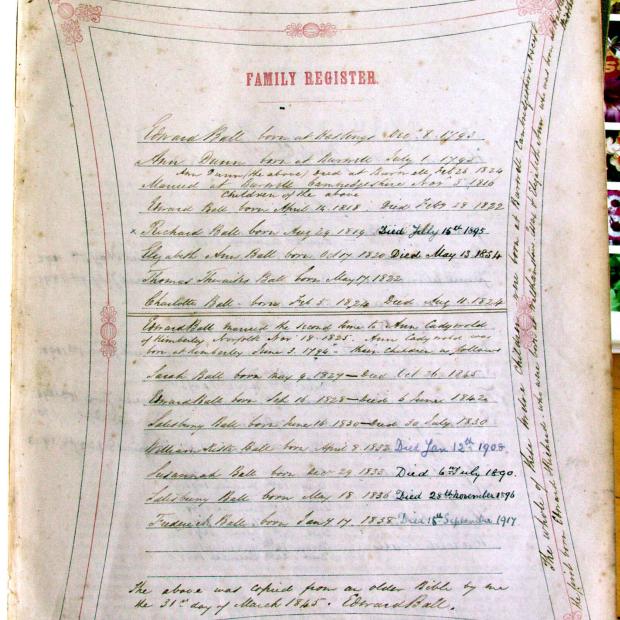 FAMILY REGISTER.
Edward Ball born at Hastings Dec 8. 1793
Ann Dunn born at Burwell July 1. 1795
Ann Dunn (the above) Died at Burwell, Feb 26 1824
Married at Burwell Cambridgeshire Nov 5 1816
Children of the above
Edward Ball born April 14. 1818 Died Feb 28 1822
x Richard Ball born Aug 29 1819 Died July 16th 1895
Elizabeth Ann Ball born Oct 17 1820 Died May 13 1854
Thomas Ball born May 17. 1822
Charlotte Ball born Feb 5 1824 Died Aug 11. 1824
Edward Ball married the second time to Ann Ladyworld
of Kimberley, Norfolk Nov 18-1825. Ann Ladyworld was
born at Kimberley June 3. 1794 - their children as follows
Sarah Ball born May 9 1827 - Died Oct 26. 1845
Edward Ball born Sep 16 1828 - died 6 June 1842
Salisbury Ball born June 16 1830 - Died 30 July 1830
William Ball born April 8 1832 Died Jan 12th 1908
Susannah Ball born Nov 29 1833 Died 6th July 1890.
Salisbury Ball born May 18 1836 Died 28th November 1896
Frederick Ball born Jany 17. 1838 Died 18th September 1917
The above was copied from an older Bible by me
the 31st day of March 1845. Edward Ball.
The whole of these twelve children were born at Burwell Cambridgeshire except
the first born Edward, Richard who were born at &amp; Elizabeth Ann who was born at